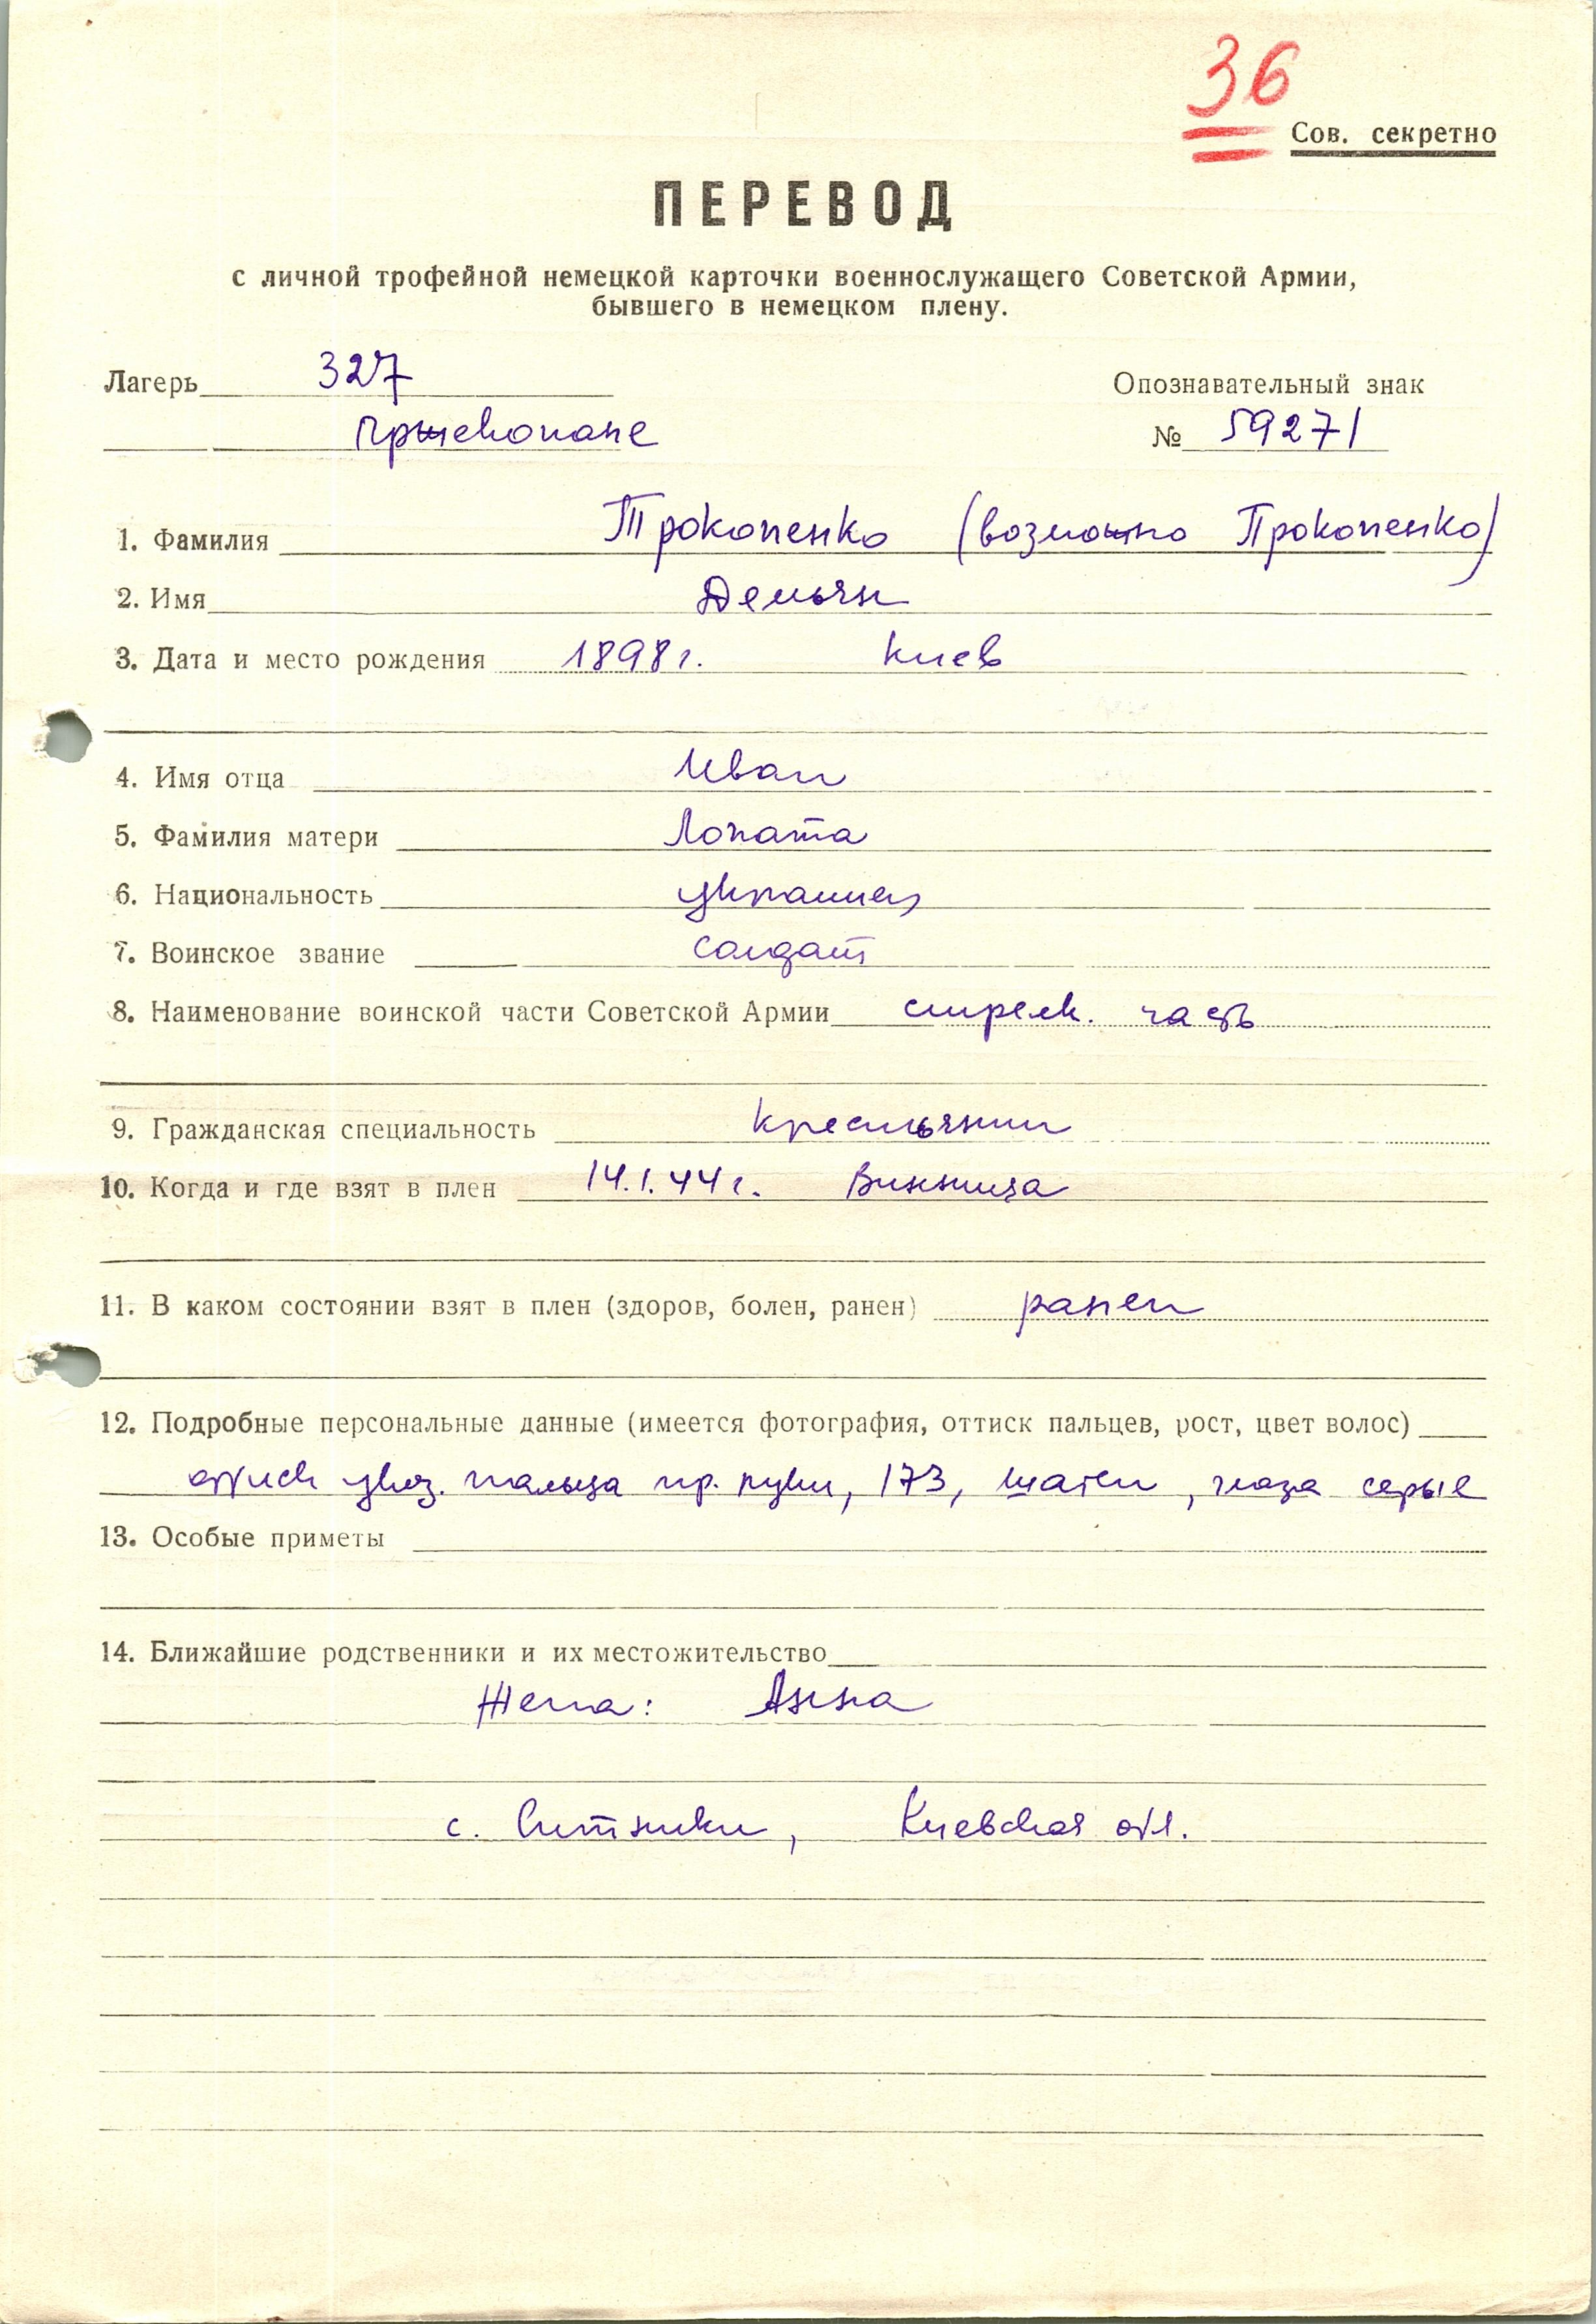 36
Сов. секретно
ПЕРЕВОД
с личной трофейной немецкой карточки военнослужащего Советской Армии,
бывшего в немецком плену.
Лагерь 327 Опознавательный знак
Пршекопане № 59271
1. Фамилия Трокопенко (возможно Прокопенко)
2. Имя Демьян
3. Дата и место рождения 1898 г. Киев
4. Имя отца Иван
5. Фамилия матери Лопата
6. Национальность украинец
7. Воинское звание солдат
8. Наименование воинской части Советской Армии стрелк. часть
9. Гражданская специальность крестьянин
10. Когда и где взят в плен 14.1.44 г. Винница
11. В каком состоянии взят в плен (здоров, болен, ранен) ранен
12. Подробные персональные данные (имеется фотография, оттиск пальцев, рост, цвет волос)
оттиск указ. пальца пр. руки, 173, шатен, глаза серые
13. Особые приметы
14. Ближайшие родственники и их местожительство
Жена: Анна
с. Ситники, Киевская обл.